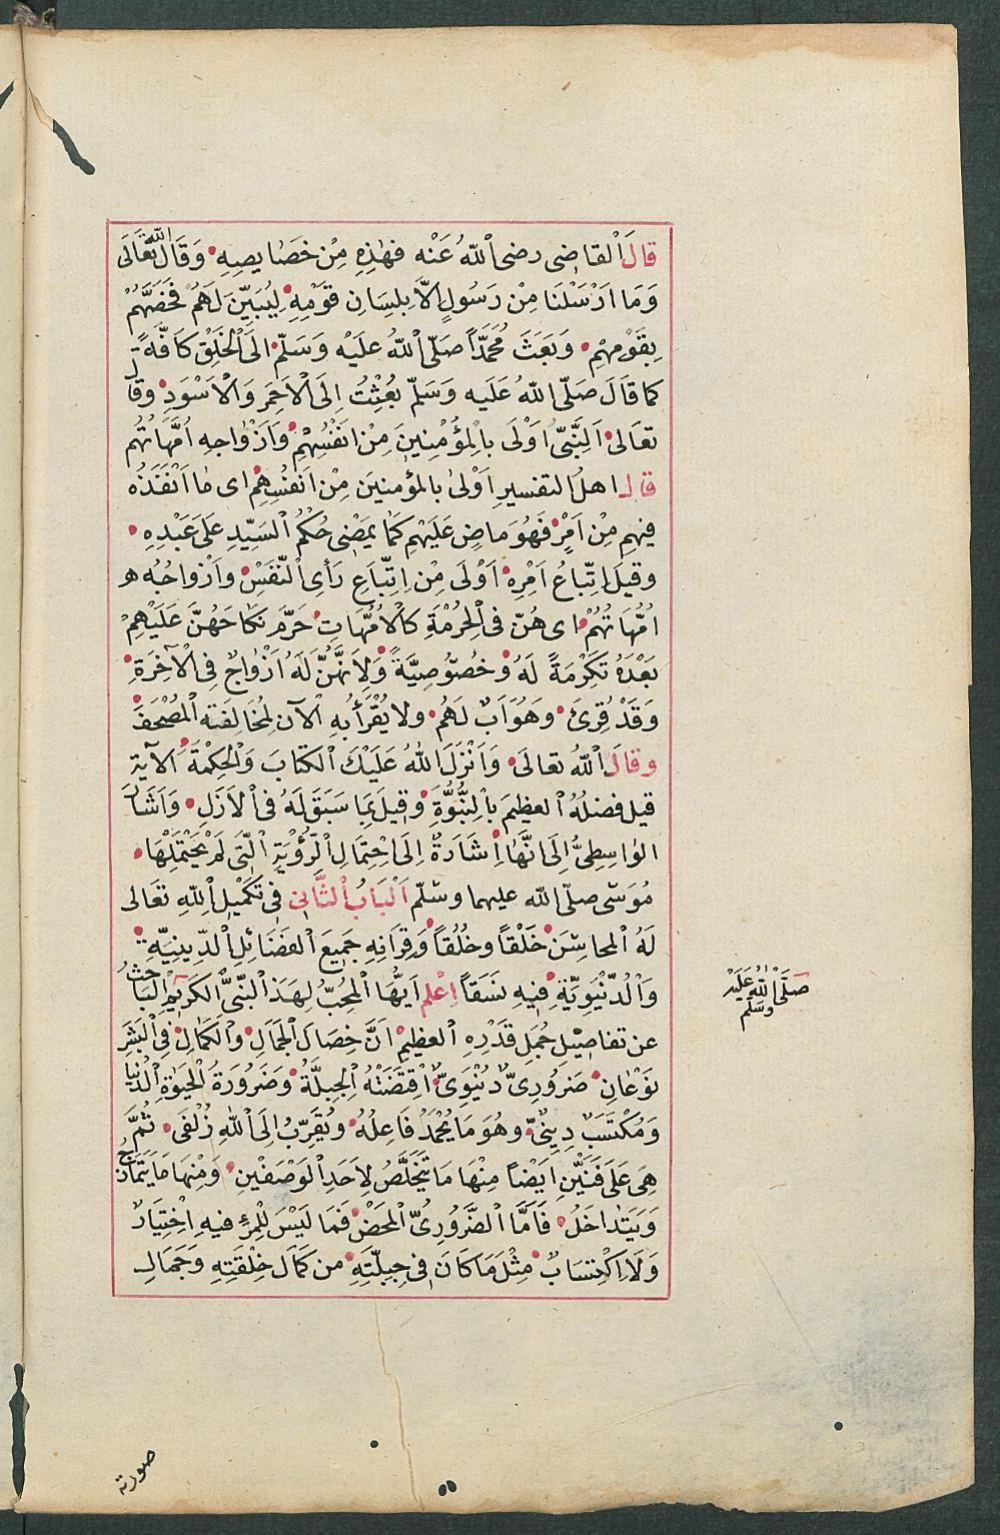 قَالَ الْقَاضِى رضى اللّٰهُ عَنْه فهٰذِهِ مِنْ خَصَايصِهِ وَقَالَ اللّٰه تَعَالَى
وَمَا اَرْسَلْنَا مِنْ رَسُولٍ اِلَّا بِلِسَانِ قَوْمِهِ لِيُبَيِّنَ لَهُمْ فَخَصَّهُمْ
بِقَوْمِهِمْ وَبَعَثَ مُحَمَّداً صَلّى اللّٰهُ عَلَيْه وَسَلّم الَى الْخَلْقِ كَافَّةً
كما قَالَ صَلّى اللّٰهُ عَلَيه وَسَلّم بُعِثْتُ اِلَى الْاَحْمَرِ وَالْاَسْوَدِ وقال
تعَالى اَلنَّبِىّ اَوْلَى بالْمُؤْمِنِينَ مِنْ اَنْفُسِهِمْ وَاَزْوٰاجه اُمَّهَاتُهُم
قال اهلُ التفسيرِ اَوْلىٰ بالمؤمنين مِنْ اَنفُسِهِمْ اى مٰا اَنْفَذَهُ
فيهِم مِنْ اَمْرٍ فَهُوَ ماضٍ عَلَيْهِم كَمٰا يمَضْى حُكْمُ السَيِّدِ عَلَى عَبْدِهِ
وقيلَ اِتّبَاعُ اَمْرِهِ اَوْلَى مِنْ اِتِّبَاعِ رَأىِ النَّفْسِ واَزْوٰاجُهُ هو
اُمَّهَاتُهُمْ اى هُنّ فى الْحُرْمَةِ كالْاُمَّهَاتِ حَرَّمَ نكَاحَهُنَّ عَلَيْهِمْ
بَعْدَهُ تَكْرِمَةً لَهُ وَخُصُوصِيَّةً وَلِاَنَّهُنَّ لَهُ اَزْوٰاجٌ فِى الْآخِرَةِ
وَقَدْ قُرِئَ وَهُوَ اَبٌ لَهُمْ ولا يُقْرَأُ بهِ الْآن لمُخَالَفته الْمُصْحَفَ
وقالَ اللّٰهُ تعالَى وَاَنْزَلَ اللّٰهُ عَلَيْكَ الكتابَ وَالْحِكْمَةَ الآيَة
قيل فضلُهُ العظيمَ بالنُّبُوَّةِ وقيلَ بمَا سَبَقَ لَهُ فى الْاَزَلِ وَاَشَارَ
الوٰاسِطِىُّ اِلَى اَنَّهَا اِشَارَةٌ اِلَى احْتِمَالِ الرُّؤْيَةِ الّتى لَمْ يَحْتَمِلْهَا
مُوسَى صلّى اللّٰه عليهما وسّلّم اَلْبَابُ الثَّانِى فى تَكْمِيْلِ اللّٰهِ تعَالى
لَهُ المحاسِنَ خَلْقاً وخُلُقاً وَقِرَانِهِ جَمِيعَ الفَضَائِلِ الدّينِيَّةِ
وَالْدُّنْيَوِيَّةِ فِيهِ نسَقاً اِعْلم اَيّهَا الْمُحِبُّ لِهذَا النَّبِىُّ الكَرِيمِ الْبَاحثُ
صَلَّى اللّٰهُ عَلَيْه
وَسَلّم
عن تفَاصِيْلِ جُمَلِ قَدْرِهِ العظيمِ اَنَّ خِصَالَ الْجَمَالِ وَالكَمَالِ فِى الْبَشَرِ
نوْعَانِ ضَرُورِىّ دُنْيَوِىٌّ اقْتَضَتْهُ الجِبِلَّةُ وَضَرُورَةُ الْحَيٰوةِ الدُّنْيَا
وَمُكْتَسَبٌ دِينِىٌّ وهُوَ مَا يُحْمَدُ فَاعِلُهُ وَيُقَرِّبُ اِلَى اللّٰهِ زُلْفَى ثُمَّ
هِىَ عَلَى فَنَّيْنِ اَيْضاً مِنْهَا مَا يَتَخَلَّصُ لِاَحَدِ الْوَصْفَيْنِ وَمِنْهَا مَا يَتَمَازَجُ
وَيَتَدٰاخَلُ فَاَمَّا الضَّرُورِىّ الْمَحْضُ فَمَا لَيْسَ لِلْمَرْءِ فيهِ اِخْتِيَارٌ
وَلَا اكْتِسَابٌ مِثْلَ مَا كَانَ فى جِبِلَّتِهِ من كَمَالِ خِلْقَتِهِ وَجَمَالِ
صورته